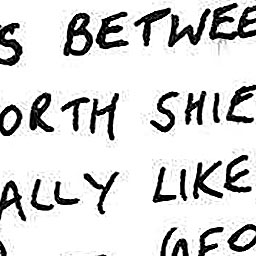 S BETWEE
ORTH SHIE
ALLY LIKE
GEO